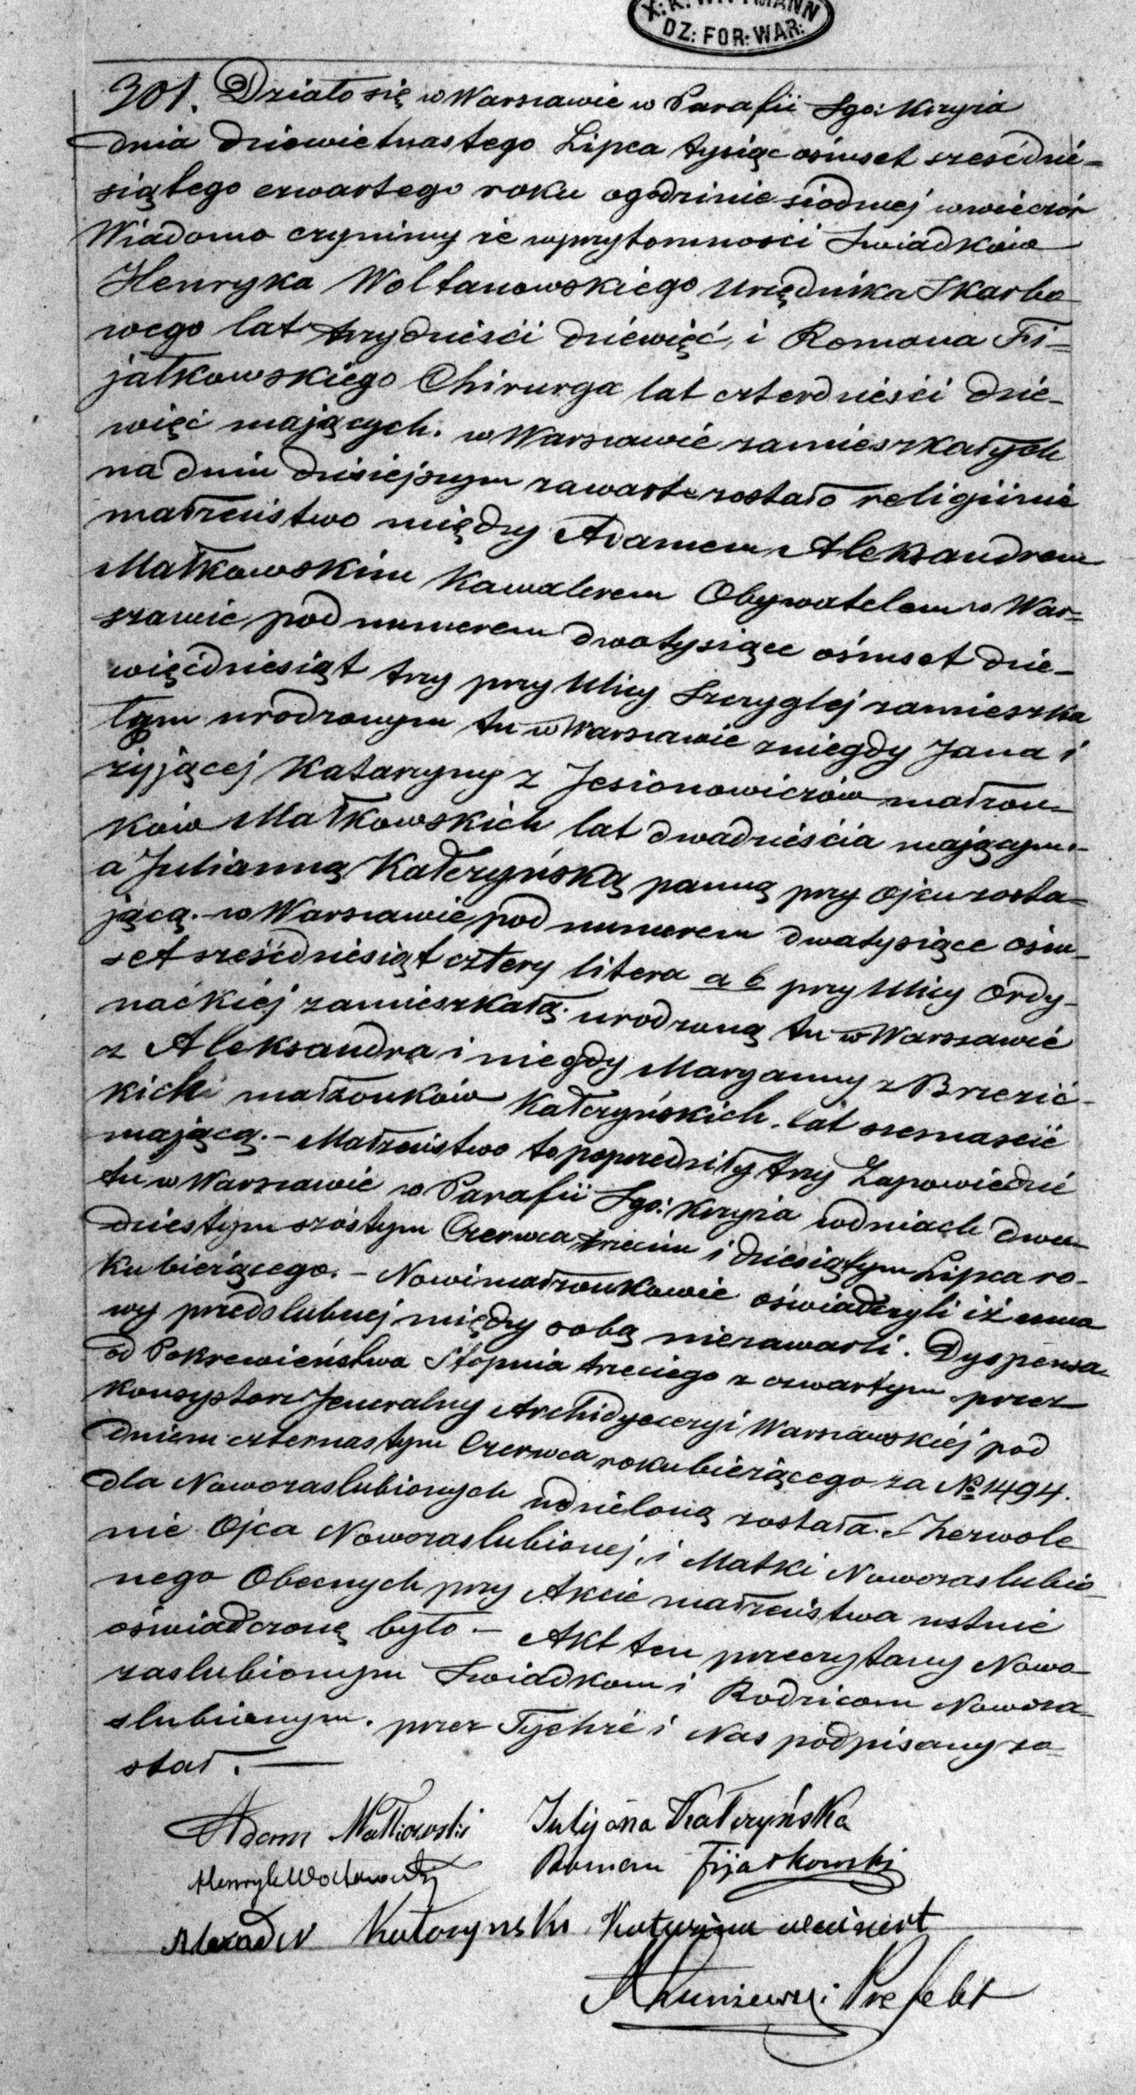 X: K. WITTMANN
DZ: FOR: WAR:
301. Działo się w Warszawie w Parafii Sgo: Krzyża
dnia dziewiętnastego Lipca tysiąc ośmset sześćdzie=
siątego czwartego roku o godzinie siódmej w wieczór
Wiadomo czynimy że w przytomności Swiadków
Henryka Woltanowskiego Urzędnika Skarbo
wego lat trzydzieści dziewięć, i Romana Fi=
jałkowskiego Chirurga lat czterdzieści dzie-
więć mających. w Warszawie zamieszkałych
na dniu dzisiejszym zawarte zostało religijnie
małżeństwo między Adamem Aleksandrem
Małkowskim Kawalerem Obywatelem w War=
szawie pod numerem dwatysiące ośmset dzie-
więćdziesiąt trzy przy Ulicy Szczyglej zamieszka
łym urodzonym tu w Warszawie z niegdy Jana i
żyjącej Katarzyny z Jesionowiczów małżon-
ków Małkowskich lat dwadzieścia mającym.-
a Julianną Kałczyńską panną przy ojcu zosta=
jącą.- w Warszawie pod numerem dwatysiące ośm-
set sześćdziesiąt cztery litera a b przy Ulicy Ordy-
nackiej zamieszkałą. urodzoną tu w Warszawie
z Aleksandra i niegdy Maryanny z Brzezic-
kich małżonków Kałczyńskich. lat ośmnaście
mającą.- Małżeństwo to poprzedziły trzy Zapowiedzie
tu w Warszawie w Parafii Sgo: Krzyża w dniach dwu-
dziestym szóstym Czerwca trzecim i dziesiątym Lipca ro-
ku bieżącego.- Nowi małżonkowie oświadczyli iż umo
wy przedślubnej między sobą niezawarli. Dyspensa
od Pokrewieństwa Stopnia trzeciego z czwartym przez
Konsystorz Jeneralny Archidyecezyi Warszawskiej pod
dniem czternastym Czerwca roku bieżącego za № 1494.
dla Nowozaslubionych udzieloną została. Zezwole
nie Ojca Nowozaslubionej i Matki Nowozaslubio
nego Obecnych przy Akcie małżeństwa ustnie
oświadczone było - Akt ten przeczytany Nowo-
zaslubionym Swiadkom i Rodzicom Nowoza-
slubionym. przez Tychże i Nas podpisany zo-
stał. —
Adam Małkowski Julijana Kałczyńska
Henryk Woltanowski Roman Fijałkowski
Kałczynski Katarzyna
Prefekt